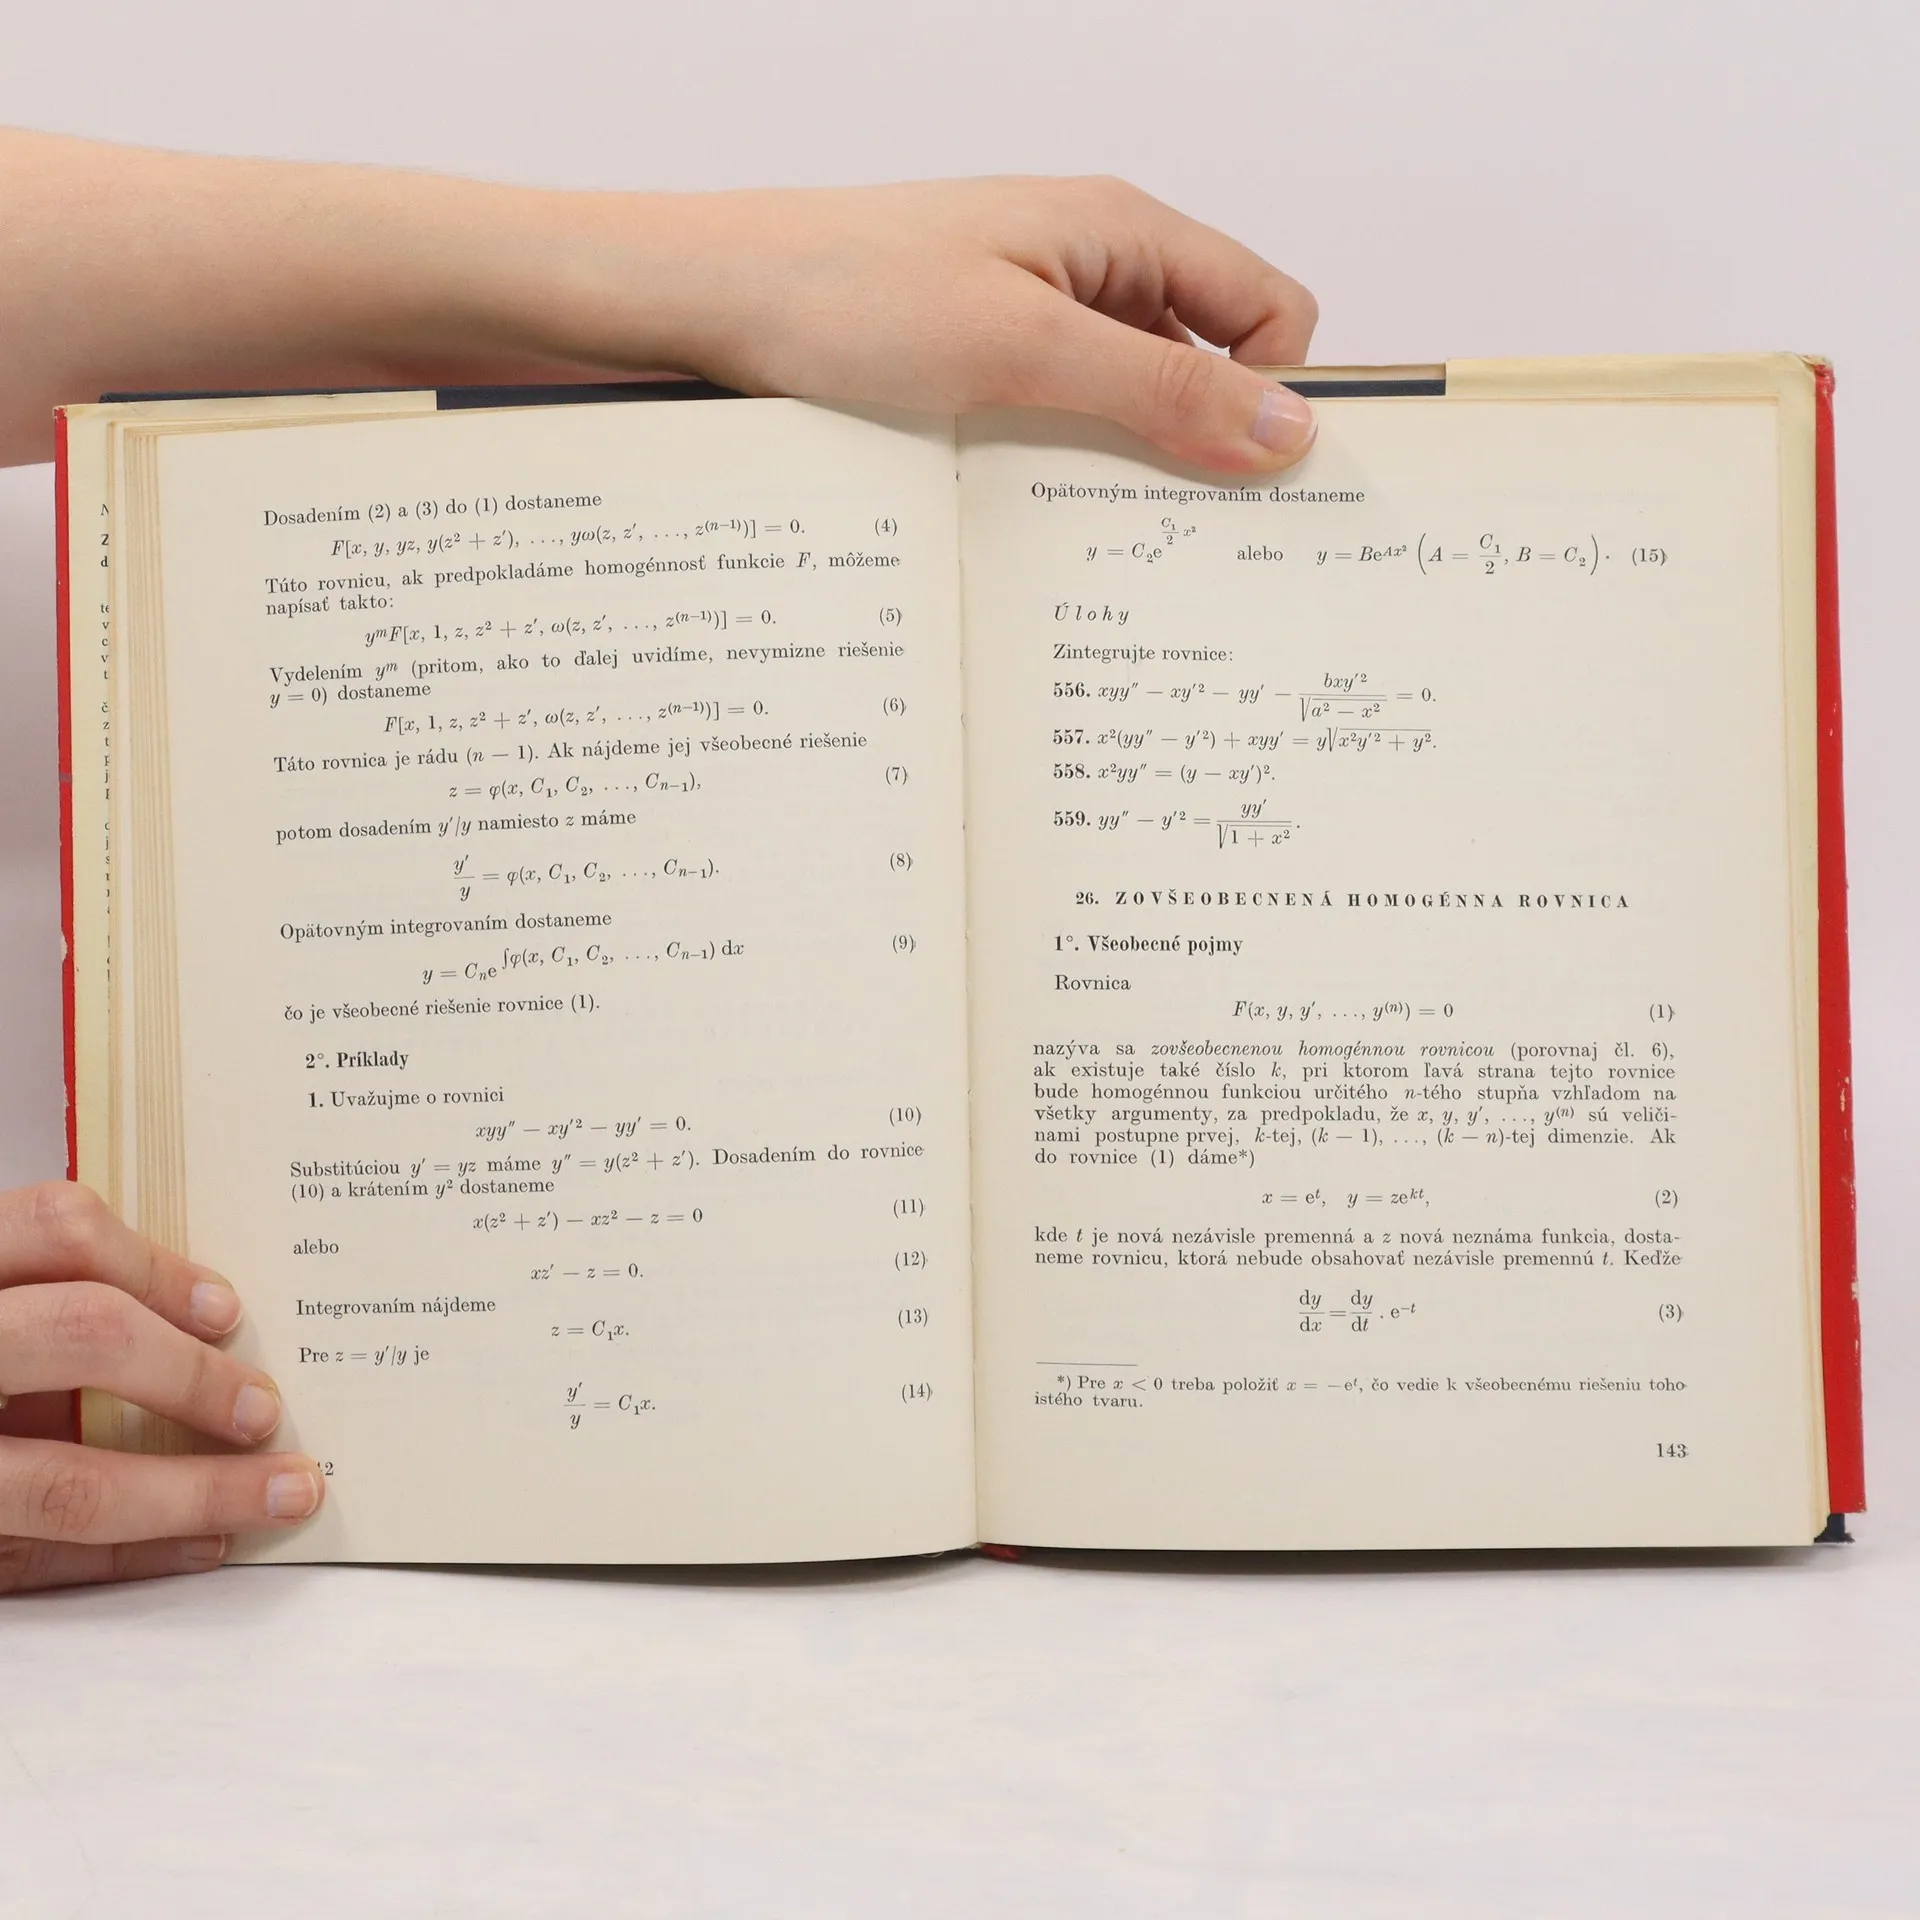 Dosadením (2) a (3) do (1) dostaneme
F[x, y, yz, y(z² + z′), ..., yω(z, z′, ..., z⁽ⁿ⁻¹⁾)] = 0. (4)
Túto rovnicu, ak predpokladáme homogénnosť funkcie F, môžeme
napísať takto:
yᵐF[x, 1, z, z² + z′, ω(z, z′, ..., z⁽ⁿ⁻¹⁾)] = 0. (5)
Vydelením yᵐ (pritom, ako to ďalej uvidíme, nevymizne riešenie
y = 0) dostaneme
F[x, 1, z, z² + z′, ω(z, z′, ..., z⁽ⁿ⁻¹⁾)] = 0. (6)
Táto rovnica je rádu (n — 1). Ak nájdeme jej všeobecné riešenie
z = φ(x, C₁, C₂, ..., Cₙ₋₁), (7)
potom dosadením y′/y namiesto z máme
y′/y = φ(x, C₁, C₂, ..., Cₙ₋₁). (8)
Opätovným integrovaním dostaneme
y = Cₙe^∫φ(x, C₁, C₂, ..., Cₙ₋₁) dx (9)
čo je všeobecné riešenie rovnice (1).
2°. Príklady
1. Uvažujme o rovnici
xyy″ — xy′² — yy′ = 0. (10)
Substitúciou y′ = yz máme y″ = y(z² + z′). Dosadením do rovnice
(10) a krátením y² dostaneme
x(z² + z′) — xz² — z = 0 (11)
alebo
xz′ — z = 0. (12)
Integrovaním nájdeme
z = C₁x. (13)
Pre z = y′/y je
y′/y = C₁x. (14)
2
Opätovným integrovaním dostaneme
y = C₂e^(C₁/2 x²) alebo y = Be^(Ax²) (A = C₁/2, B = C₂). (15)
Úlohy
Zintegrujte rovnice:
556. xyy″ — xy′² — yy′ — bxy′²/√(a² — x²) = 0.
557. x²(yy″ — y′²) + xyy′ = y√(x²y′² + y²).
558. x²yy″ = (y — xy′)².
559. yy″ — y′² = yy′/√(1 + x²).
26. ZOVŠEOBECNENÁ HOMOGÉNNA ROVNICA
1°. Všeobecné pojmy
Rovnica
F(x, y, y′, ..., y⁽ⁿ⁾) = 0 (1)
nazýva sa zovšeobecnenou homogénnou rovnicou (porovnaj čl. 6),
ak existuje také číslo k, pri ktorom ľavá strana tejto rovnice
bude homogénnou funkciou určitého n-tého stupňa vzhľadom na
všetky argumenty, za predpokladu, že x, y, y′, ..., y⁽ⁿ⁾ sú veliči-
nami postupne prvej, k-tej, (k — 1), ..., (k — n)-tej dimenzie. Ak
do rovnice (1) dáme*)
x = eᵗ, y = zeᵏᵗ, (2)
kde t je nová nezávisle premenná a z nová neznáma funkcia, dosta-
neme rovnicu, ktorá nebude obsahovať nezávisle premennú t. Keďže
dy/dx = dy/dt . e⁻ᵗ (3)
*) Pre x < 0 treba položiť x = —eᵗ, čo vedie k všeobecnému riešeniu toho
istého tvaru.
143